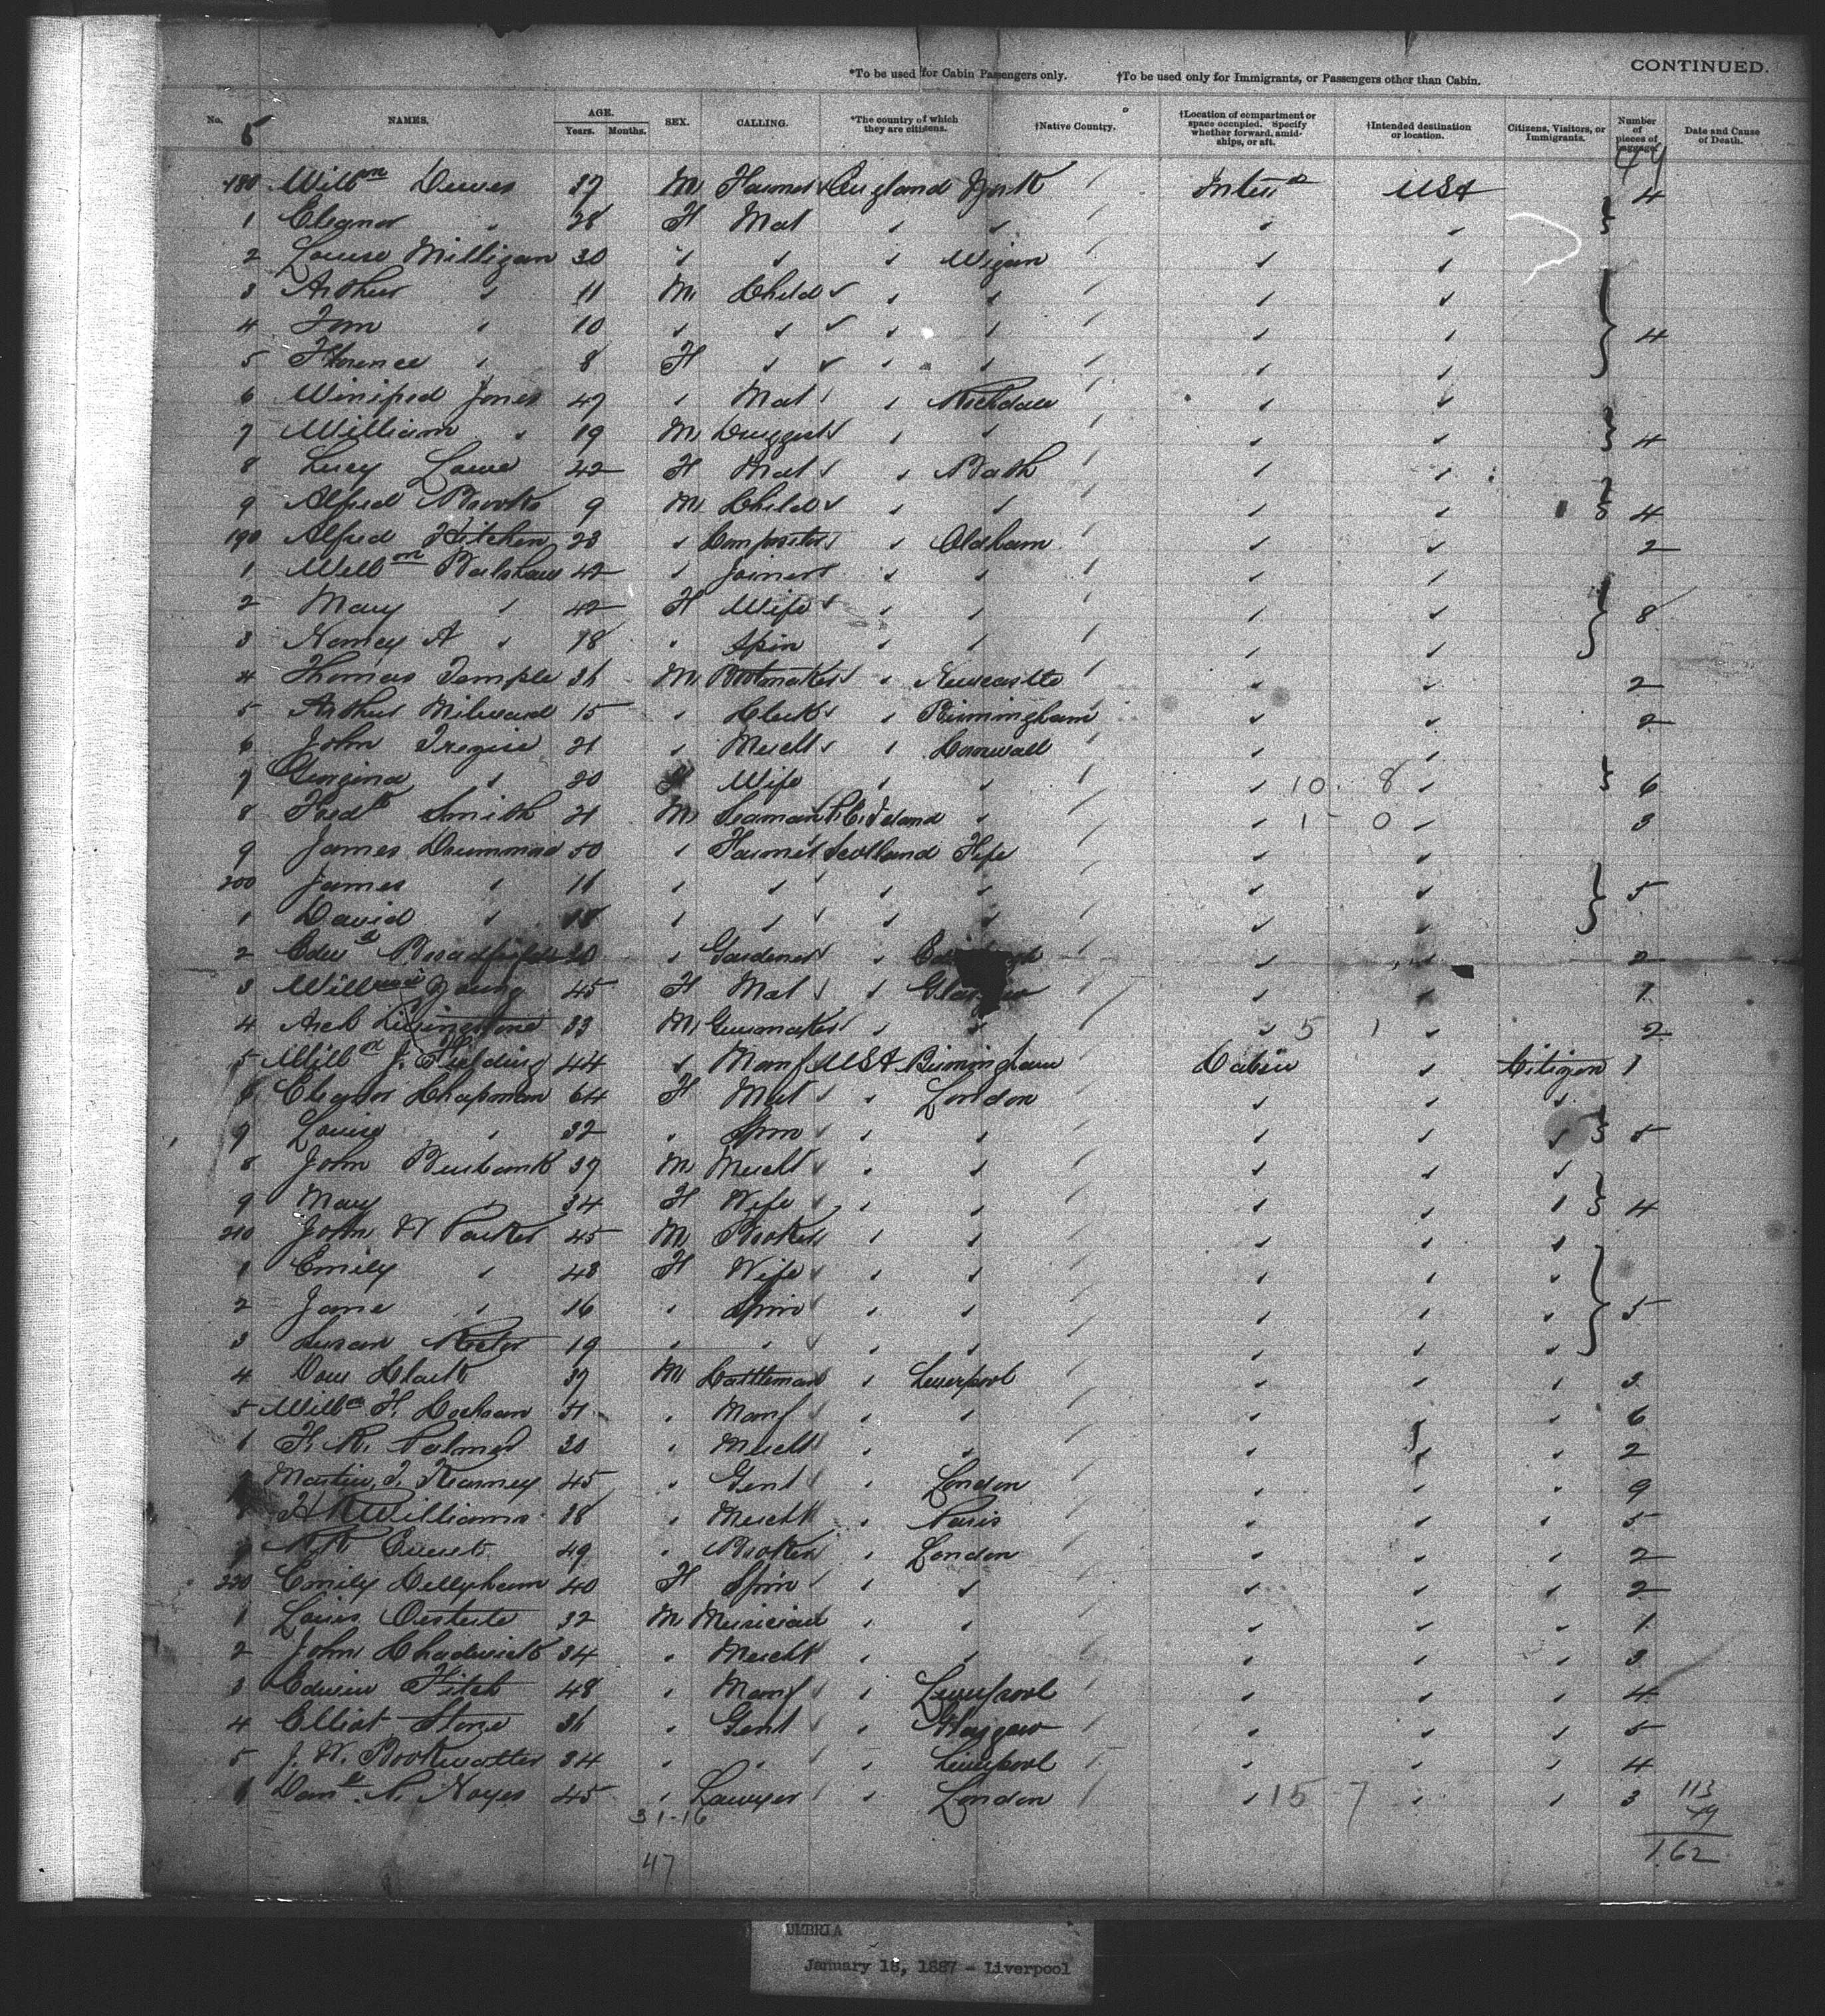 *To be used for Cabin Passengers only. †To be used only for Immigrants, or Passengers other than Cabin. CONTINUED.
No. NAMES. AGE. Years. Months. SEX. CALLING. *The country of which they are citizens. †Native Country. †Location of compartment or space occupied. Specify whether forward, amidships, or aft. †Intended destination or location. Citizens, Visitors, or Immigrants. Number of pieces of baggage. Date and Cause of Death.
5 49
180 Willm 37 M Farmer England York USA 4
1 Eleanor " 28 F Mat " "
2 Louise Milligan 30 " " " Wigan
3 Arthur " 11 M Child " "
4 Tom " 10 " " " " 4
5 Florence " 8 F " " "
6 Winifred Jones 47 " Mat " Rochdale
7 William " 19 M Druggist " " 4
8 Lucy Lowe 42 F Mat " Bath
9 Alfred Brooks 9 M Child " " 4
190 Alfred Kitchen 23 " Compositor " Oldham 2
1 Willm 42 " Joiner " "
2 Mary " 42 F Wife " " 8
3 Nancy A " 18 " Spin " "
4 Thomas Temple 36 M Bootmaker " Newcastle 2
5 Arthur Milward 15 " Clerk " Birmingham 2
6 John Tregise 21 " Mercht " Cornwall
7 Georgina " 20 F Wife " " 10 8 6
8 Fredk Smith 21 M Seaman " 1 - 0 3
9 James Drummond 50 " Farmer Scotland Fife
200 James " 11 " " " " 5
1 David " " " " "
2 Edwd Broadfield " Gardener " 2
3 Young 45 F Mat " Glasgow 1
4 Arch Livingstone 33 M " " 5 1 2
5 J. Fielding 44 " Manf USA Birmingham Cabin " Citizen 1
6 Eleanor Chapman 64 F Mat " London
7 Louise " 32 " Spin " " 5
8 John Burbank 37 M Mercht " "
9 May " 34 F Wife " " 4
210 John W Parker 45 M Broker " "
1 Emily " 43 F Wife " "
2 Jane " 16 " Spin " " 5
3 Susan 19 " " " "
4 Clark 37 M Cattleman " Liverpool 3
5 Willm H. 51 " Manf " " 6
6 F. R. Palmer 30 " Mercht " " 2
Martin J. Kearney 45 " Gent " London 9
Williams 38 " Mercht " Paris 5
49 " Broker " London 2
220 Emily 40 F Spin " " 2
1 Louis 32 M Musician " " 1
2 John Chadwick 34 " Mercht " " 3
3 Edwin Fitch 48 " Manf " Liverpool 4
4 Elliot Stone 36 " Gent " Glasgow 5
5 J. W. Bookwalter 34 " " " Liverpool 4
6 Noyes 45 " Lawyer " London 15 - 7 3
31-16
47
113
49
162
UMBRIA
January 18, 1887 - Liverpool